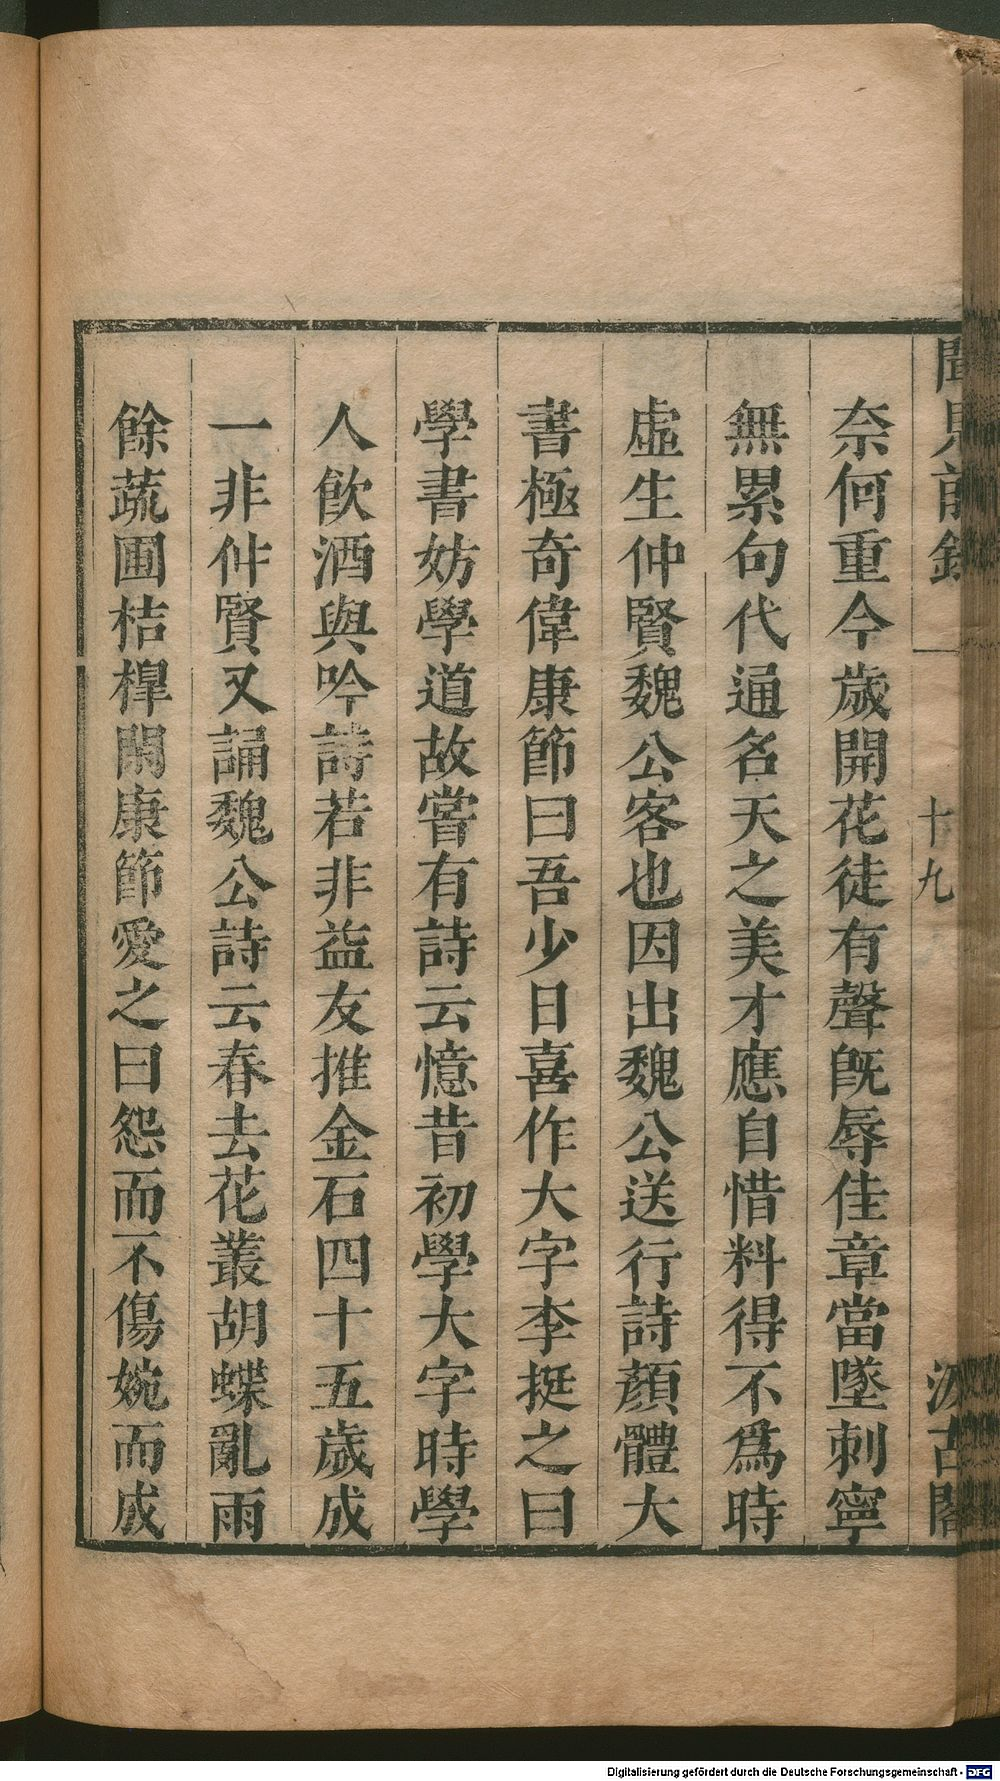 聞見前錄
十九
汲古閣
奈何重今歲開花徒有聲旣辱佳章當墜刺寧
無累句代通名天之美才應自惜料得不爲時
虛生仲賢魏公客也因出魏公送行詩顏體大
書極奇偉康節曰吾少日喜作大字李挺之曰
學書妨學道故嘗有詩云憶昔初學大字時學
人飲酒與吟詩若非益友推金石四十五歲成
一非仲賢又誦魏公詩云春去花叢胡蝶亂雨
餘蔬圃桔槹閑康節愛之曰怨而不傷婉而成
Digitalisierung gefördert durch die Deutsche Forschungsgemeinschaft - DFG